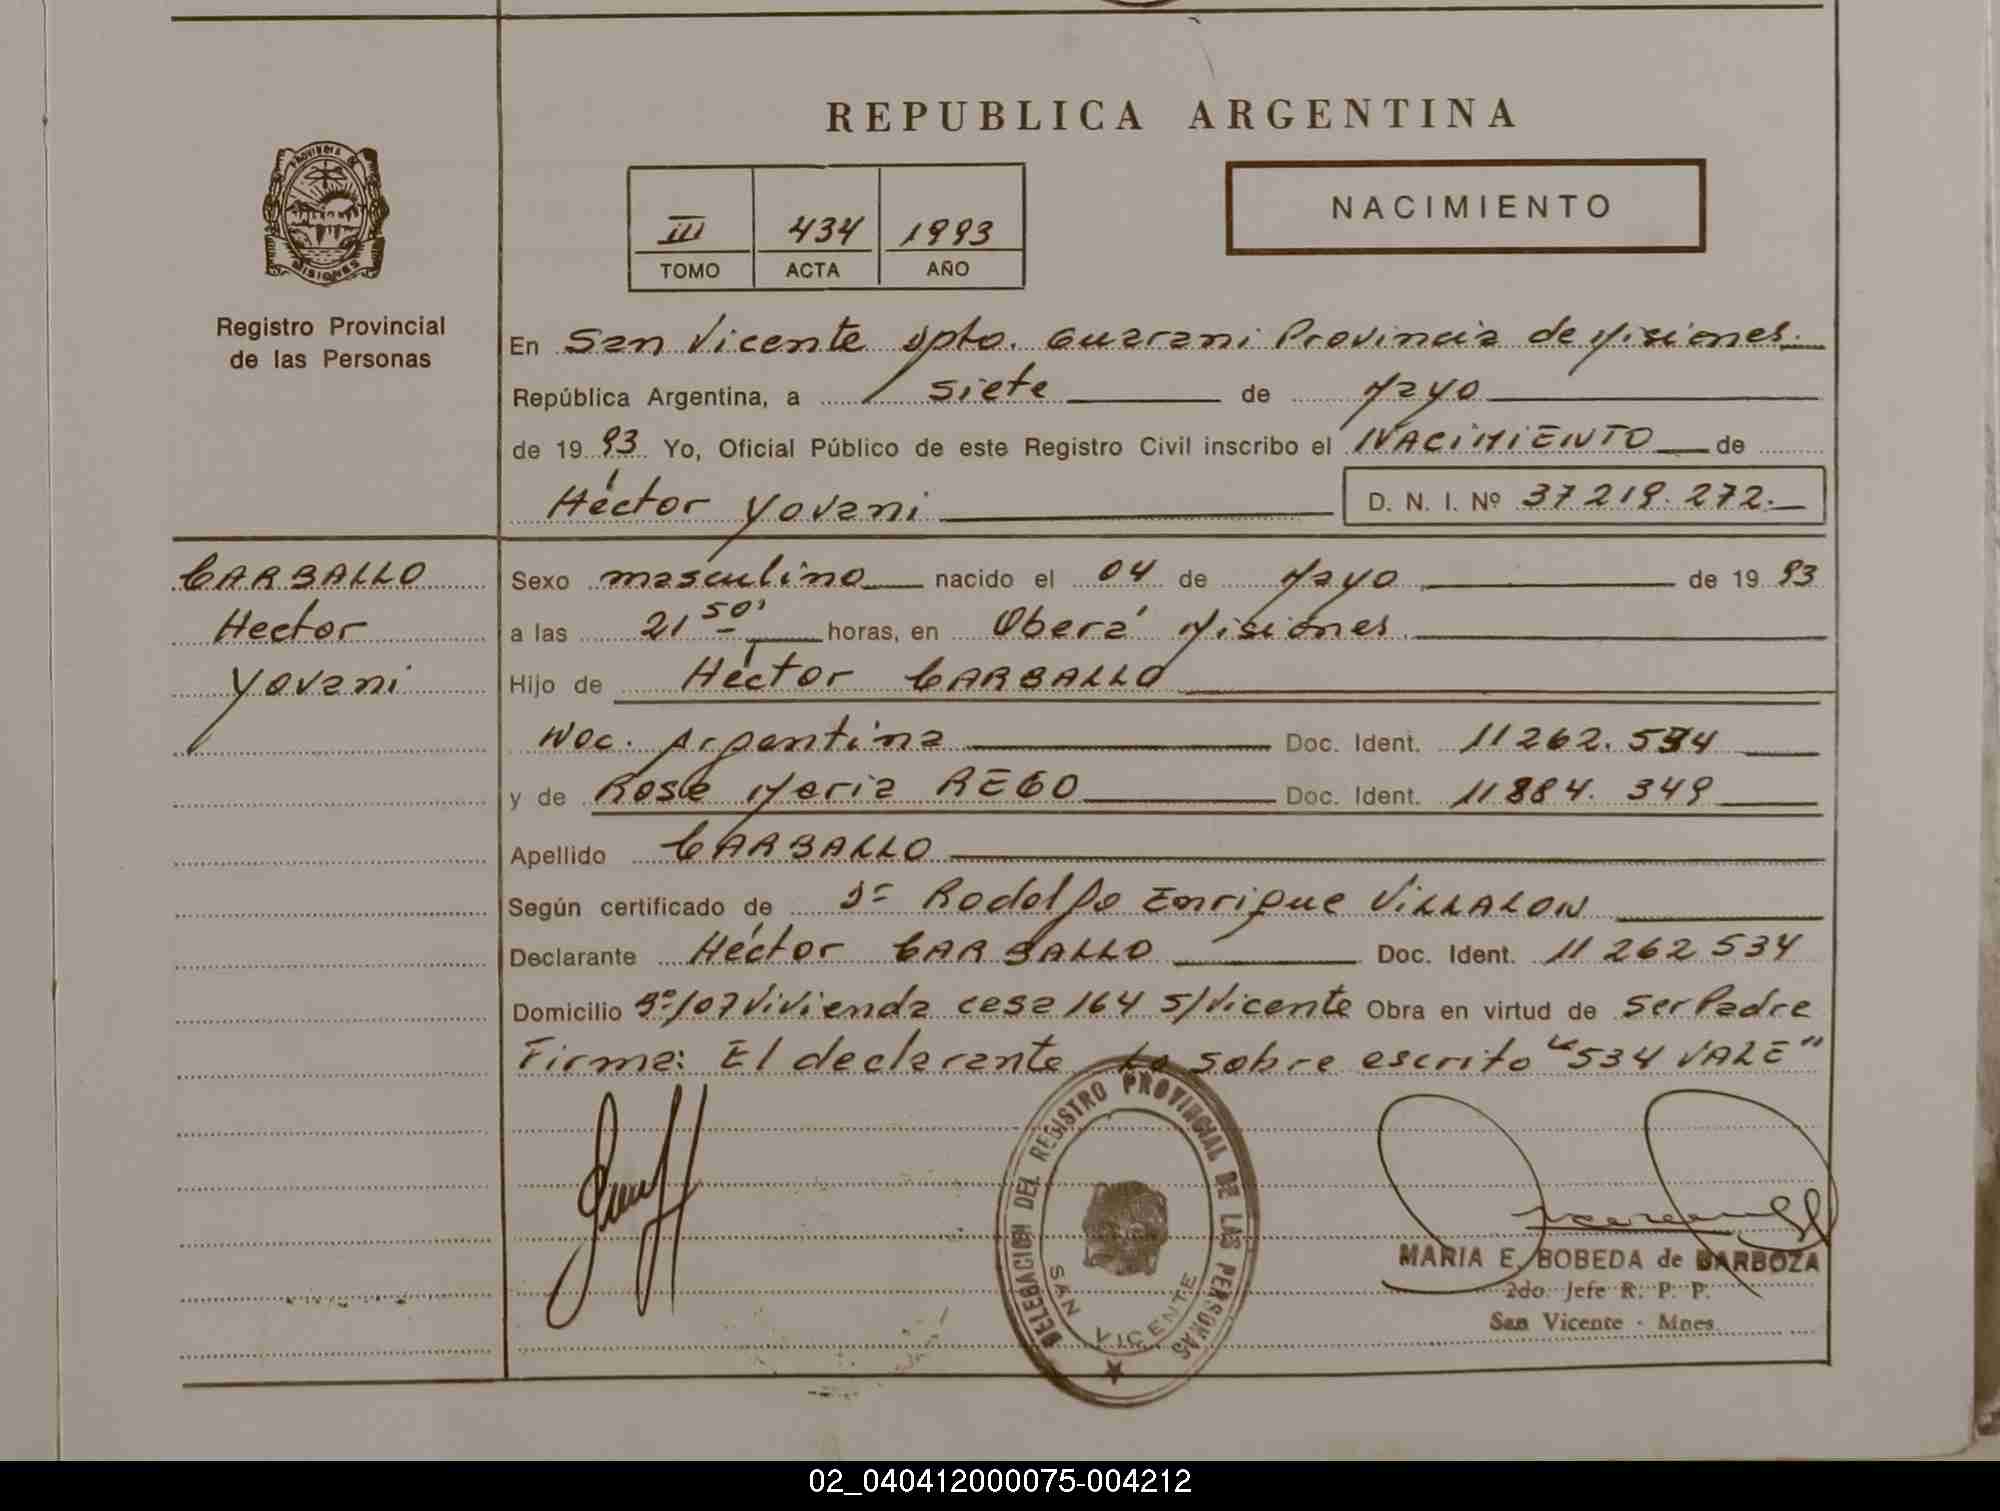 REPUBLICA ARGENTINA
NACIMIENTO
III 434 1993
TOMO ACTA AÑO
PROVINCIA DE
MISIONES
Registro Provincial
de las Personas
En San Vicente Dpto. Guarani Provincia de Misiones.
República Argentina, a siete de Mayo
de 1993 Yo, Oficial Público de este Registro Civil inscribo el NACIMIENTO de
Héctor Yovani D. N. I. Nº 37219.272.
CARBALLO
Hector
Yovani
Sexo masculino nacido el 04 de Mayo de 1993
a las 21 50' horas, en Oberá Misiones
Hijo de Héctor CARBALLO
Nac. Argentina Doc. Ident. 11262.534
y de Rosa Maria REGO Doc. Ident. 11884.349
Apellido CARBALLO
Según certificado de Dr Rodolfo Enrique VILLALON
Declarante Héctor CARBALLO Doc. Ident. 11262534
Domicilio Bº/07 Vivienda casa 164 S/Vicente Obra en virtud de ser Padre
Firma: El declarante Lo sobre escrito "534 VALE"
DELEGACION DEL REGISTRO PROVINCIAL DE LAS PERSONAS
SAN VICENTE
MARIA E. BOBEDA de BARBOZA
2do. Jefe R. P. P.
San Vicente - Mnes.
02_040412000075-004212